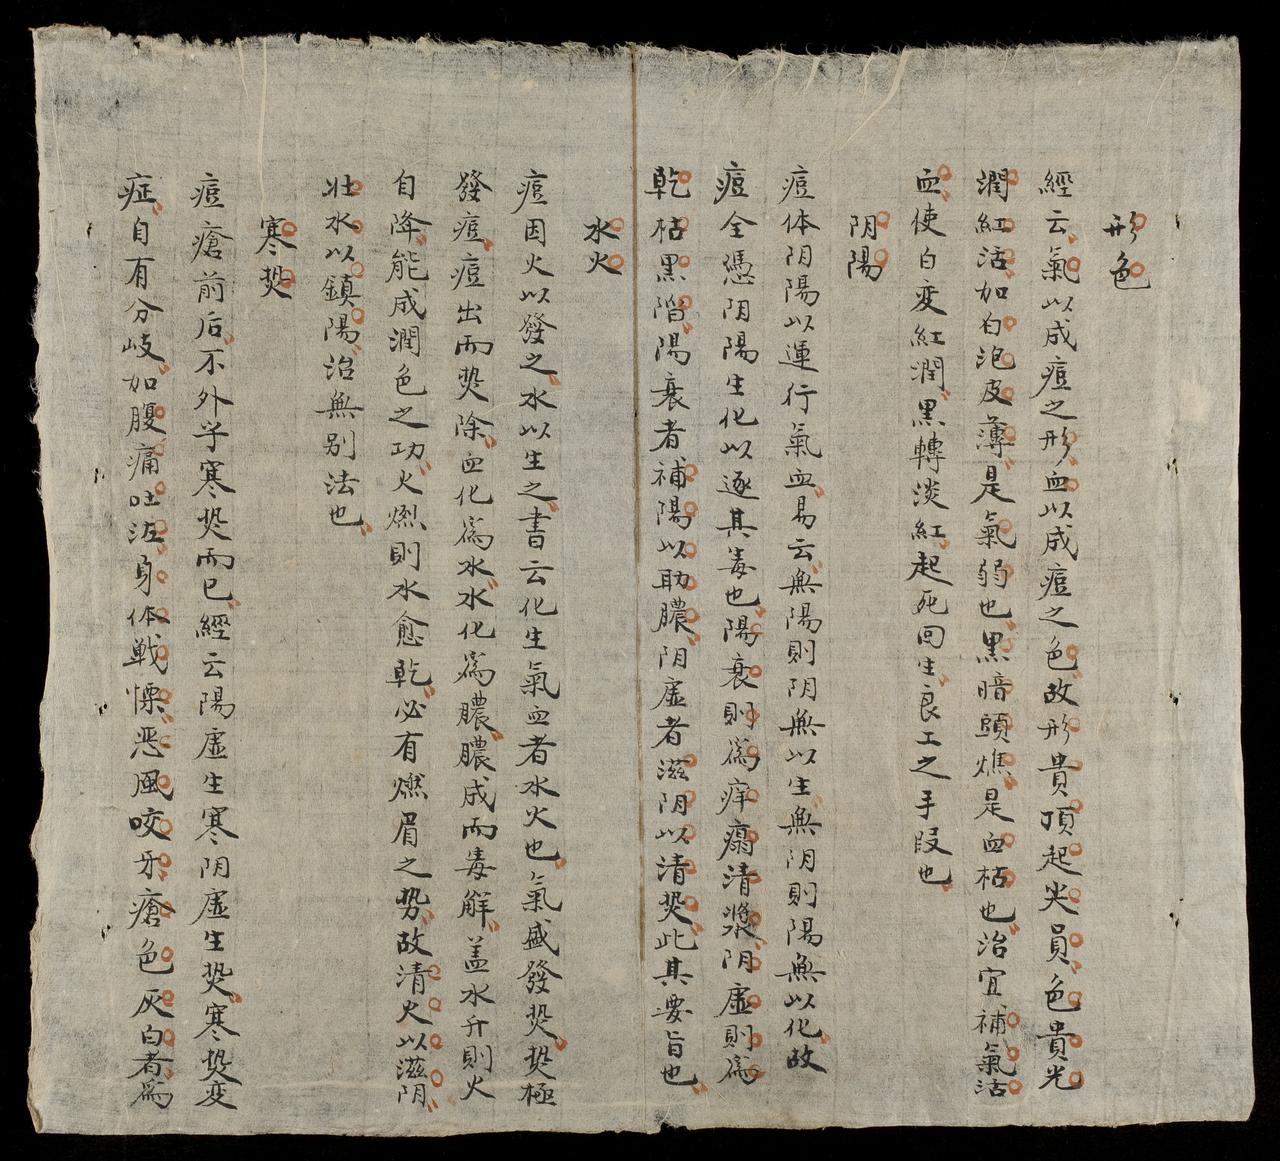 形色
經云氣以成痘之形血以成痘之色故形貴頂起尖員色貴光
潤紅活如白泡皮薄是氣弱也黑暗頭焦是血枯也治宜補氣活
血使白变紅潤黑轉淡紅起死回生良工之手段也
阴陽
痘体阴陽以運行氣血易云無陽則阴無以生無阴則陽無以化故
痘全憑阴陽生化以逐其毒也陽衰則為痒瘍清漿阴虛則為
乾枯黑陷陽衰者補陽以助膿阴虛者滋阴以清热此其要旨也
水火
痘因火以發之水以生之書云化生氣血者水火也氣盛發热热極
發痘痘出而热除血化為水水化為膿膿成而毒解盖水升則火
自降能成潤色之功火燃則水愈乾必有燃眉之势故清火以滋阴
壮水以鎮陽治無别法也
寒热
痘瘡前后不外乎寒热而已經云陽虛生寒阴虛生热寒热变
症自有分岐如腹痛吐泻身体戰慄恶風咬牙瘡色灰白者為